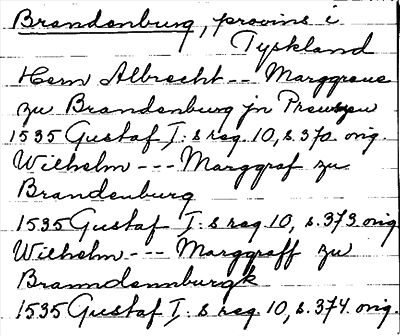 Brandenburg, provins i
Tyskland
Hern Albrecht -- Marggraue
zu Brandenburg jn Preuszen
1535 Gustaf I:s reg. 10, s. 370 orig.
Wilhelm --- Marggraf zu
Brandenburg
1535 Gustaf I:s reg. 10, s. 373 orig
Wilhelm --- Marggraff zu
Branndennburgk
1535 Gustaf I:s reg. 10, s. 374 orig.